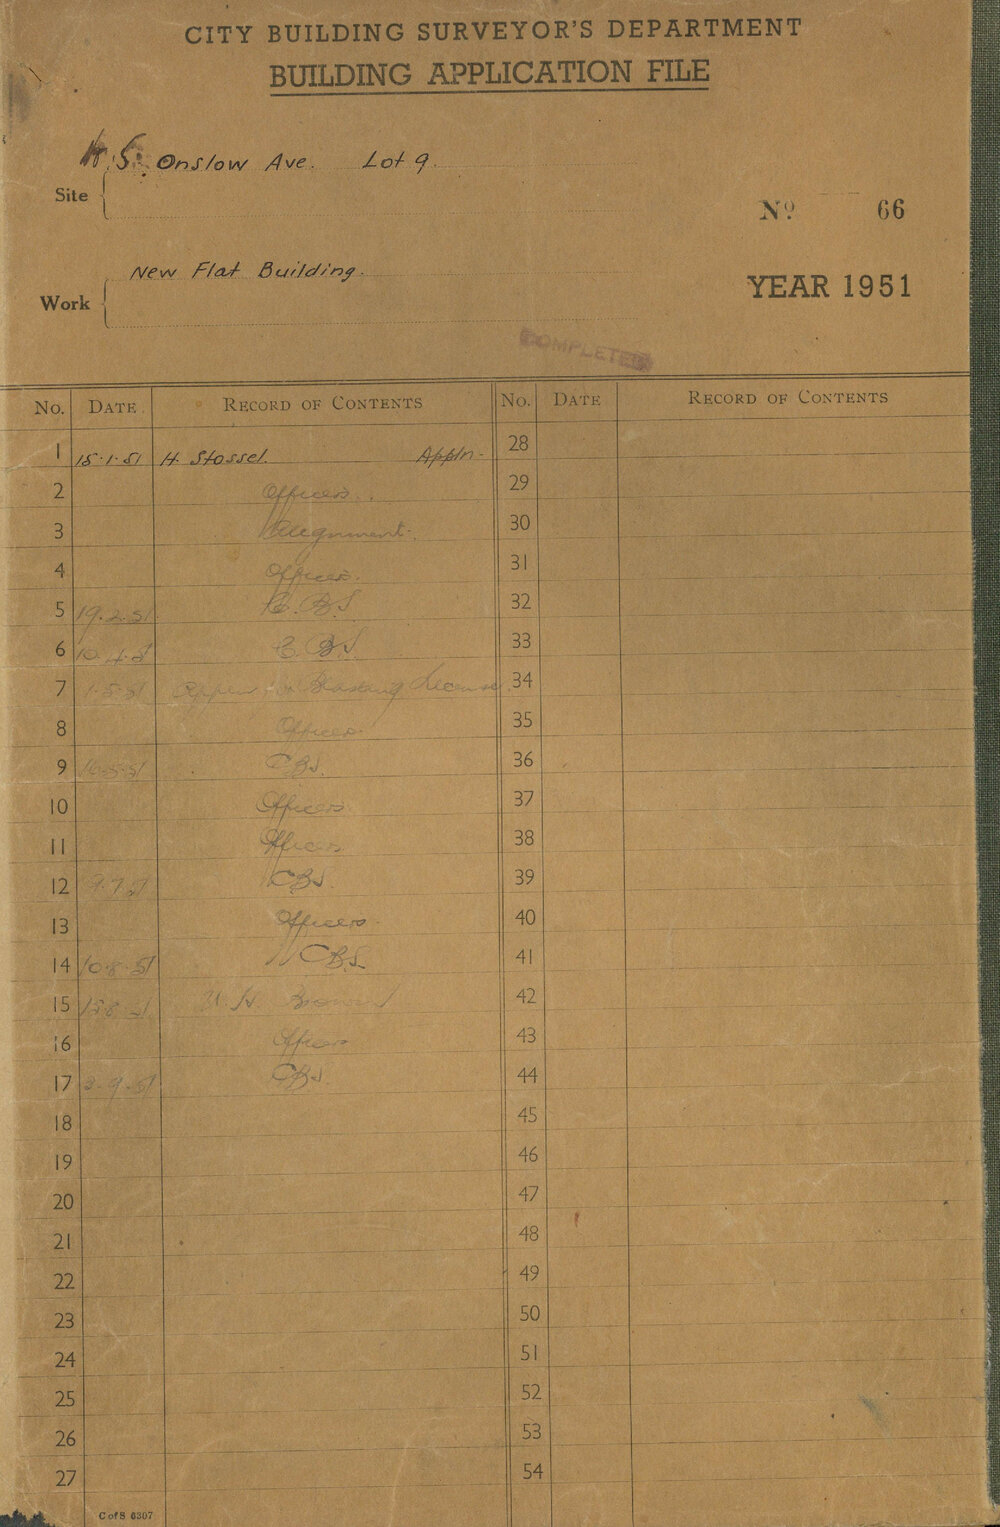 CITY BUILDING SURVEYOR'S DEPARTMENT
BUILDING APPLICATION FILE
Onslow Ave. Lot 9.
Site
No 66
New Flat Building.
Work
YEAR 1951
COMPLETED
No. DATE RECORD OF CONTENTS No. DATE RECORD OF CONTENTS
1 15.1.51 H. Stossel. Appln. 28
2 Officers. 29
3 Alignment. 30
4 Officers. 31
5 19.2.51 C.B.S 32
6 10.4.51 C.B.S. 33
7 1.5.51 License 34
8 Officers. 35
9 16.5.51 CBS. 36
10 Officers. 37
11 Officers 38
12 9.7.51 CBS. 39
13 Officers. 40
14 10.8.51 CBS. 41
15 15.8.51 42
16 Officers 43
17 3.9.51 CBS. 44
18 45
19 46
20 47
21 48
22 49
23 50
24 51
25 52
26 53
27 54
C of S 6307